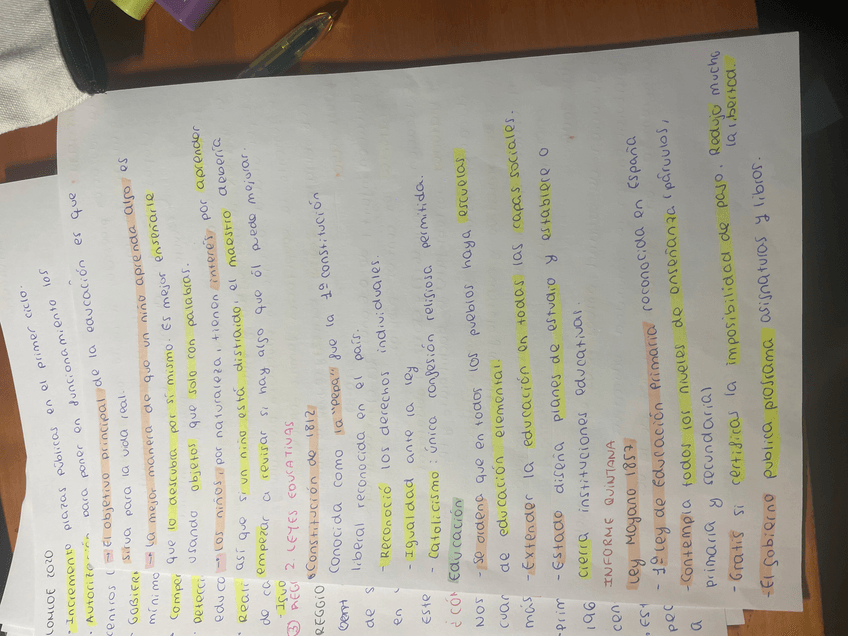 LOMLOE 2020
- Incremento plazas públicas en el primer ciclo.
para poner en funcionamiento los
centros
- El objetivo principal de la educación es que
sirva para la vida real.
- La mejor manera de que un niño aprenda algo, es
que lo descubra por si mismo. Es mejor enseñarle
usando objetos que solo con palabras.
- Los niños, por naturaleza, tienen interés por aprender
así que si un niño está distraído, el maestro debería
empezar a revisar si hay algo que él puede mejorar.
2. LEYES EDUCATIVAS
Constitución de 1812
Conocida como la "Pepa" fue la 1º constitución
liberal reconocida en el país.
- Reconoció los derechos individuales
- Igualdad ante la ley
- Catolicismo: única confesión religiosa permitida.
Educación
- Se ordena que en todos los pueblos haya escuelas
de educación elemental
- Extender la educación en todas las capas sociales.
- Estado diseña planes de estudio y establece o
cierra instituciones educativas.
INFORME QUINTANA
Ley Moyano 1857
- 1º Ley de Educación Primaria reconocida en España
- Contempla todos los niveles de enseñanza (párvulos,
primaria y secundaria)
- Gratis si certificas la imposibilidad de pago. Redujo mucho
la libertad.
- El Gobierno publica programa asignaturas y libros.
REGGIO